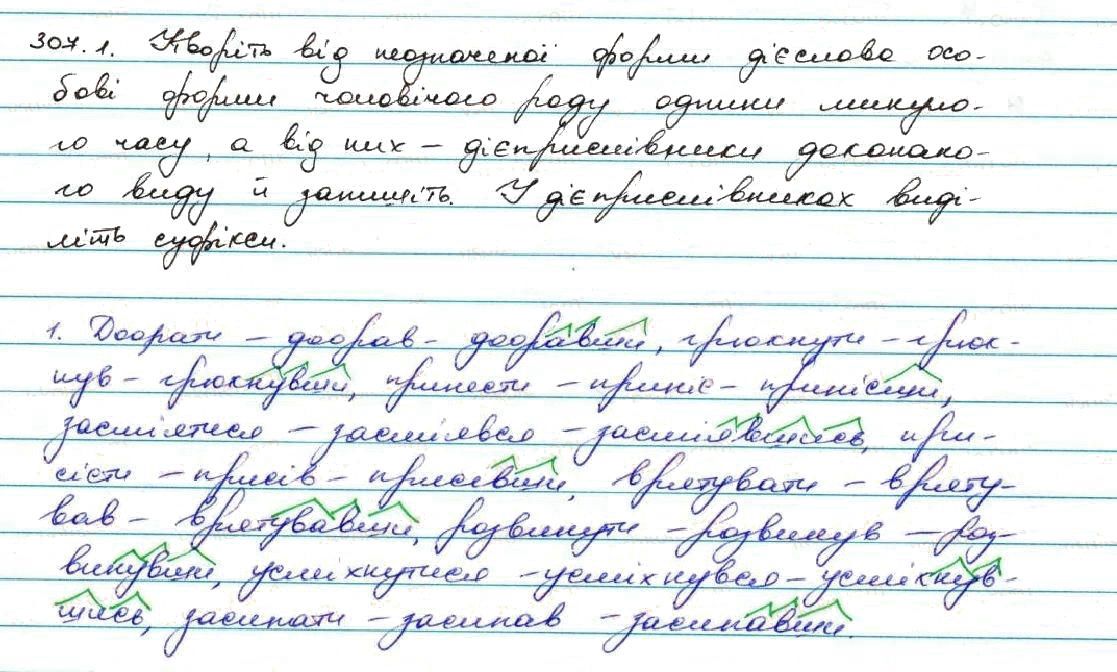 307.1. Утворіть від неозначеної форми дієслова осо-
бові форми чоловічого роду однини минуло-
го часу, а від них – дієприслівники доконано-
го виду й запишіть. У дієприслівниках виді-
літь суфікси.
1. Дообрати – дообрав – дообравши, грюкнути – грюк-
нув – грюкнувши, принести – приніс – принісши,
засміятися – засміявся – засміявшись, при-
сісти – присів – присівши, врятувати – вряту-
вав – врятувавши, розвинути – розвинув – роз-
винувши, усміхнутися – усміхнувся – усміхнув-
шись, засипати – засипав – засипавши.